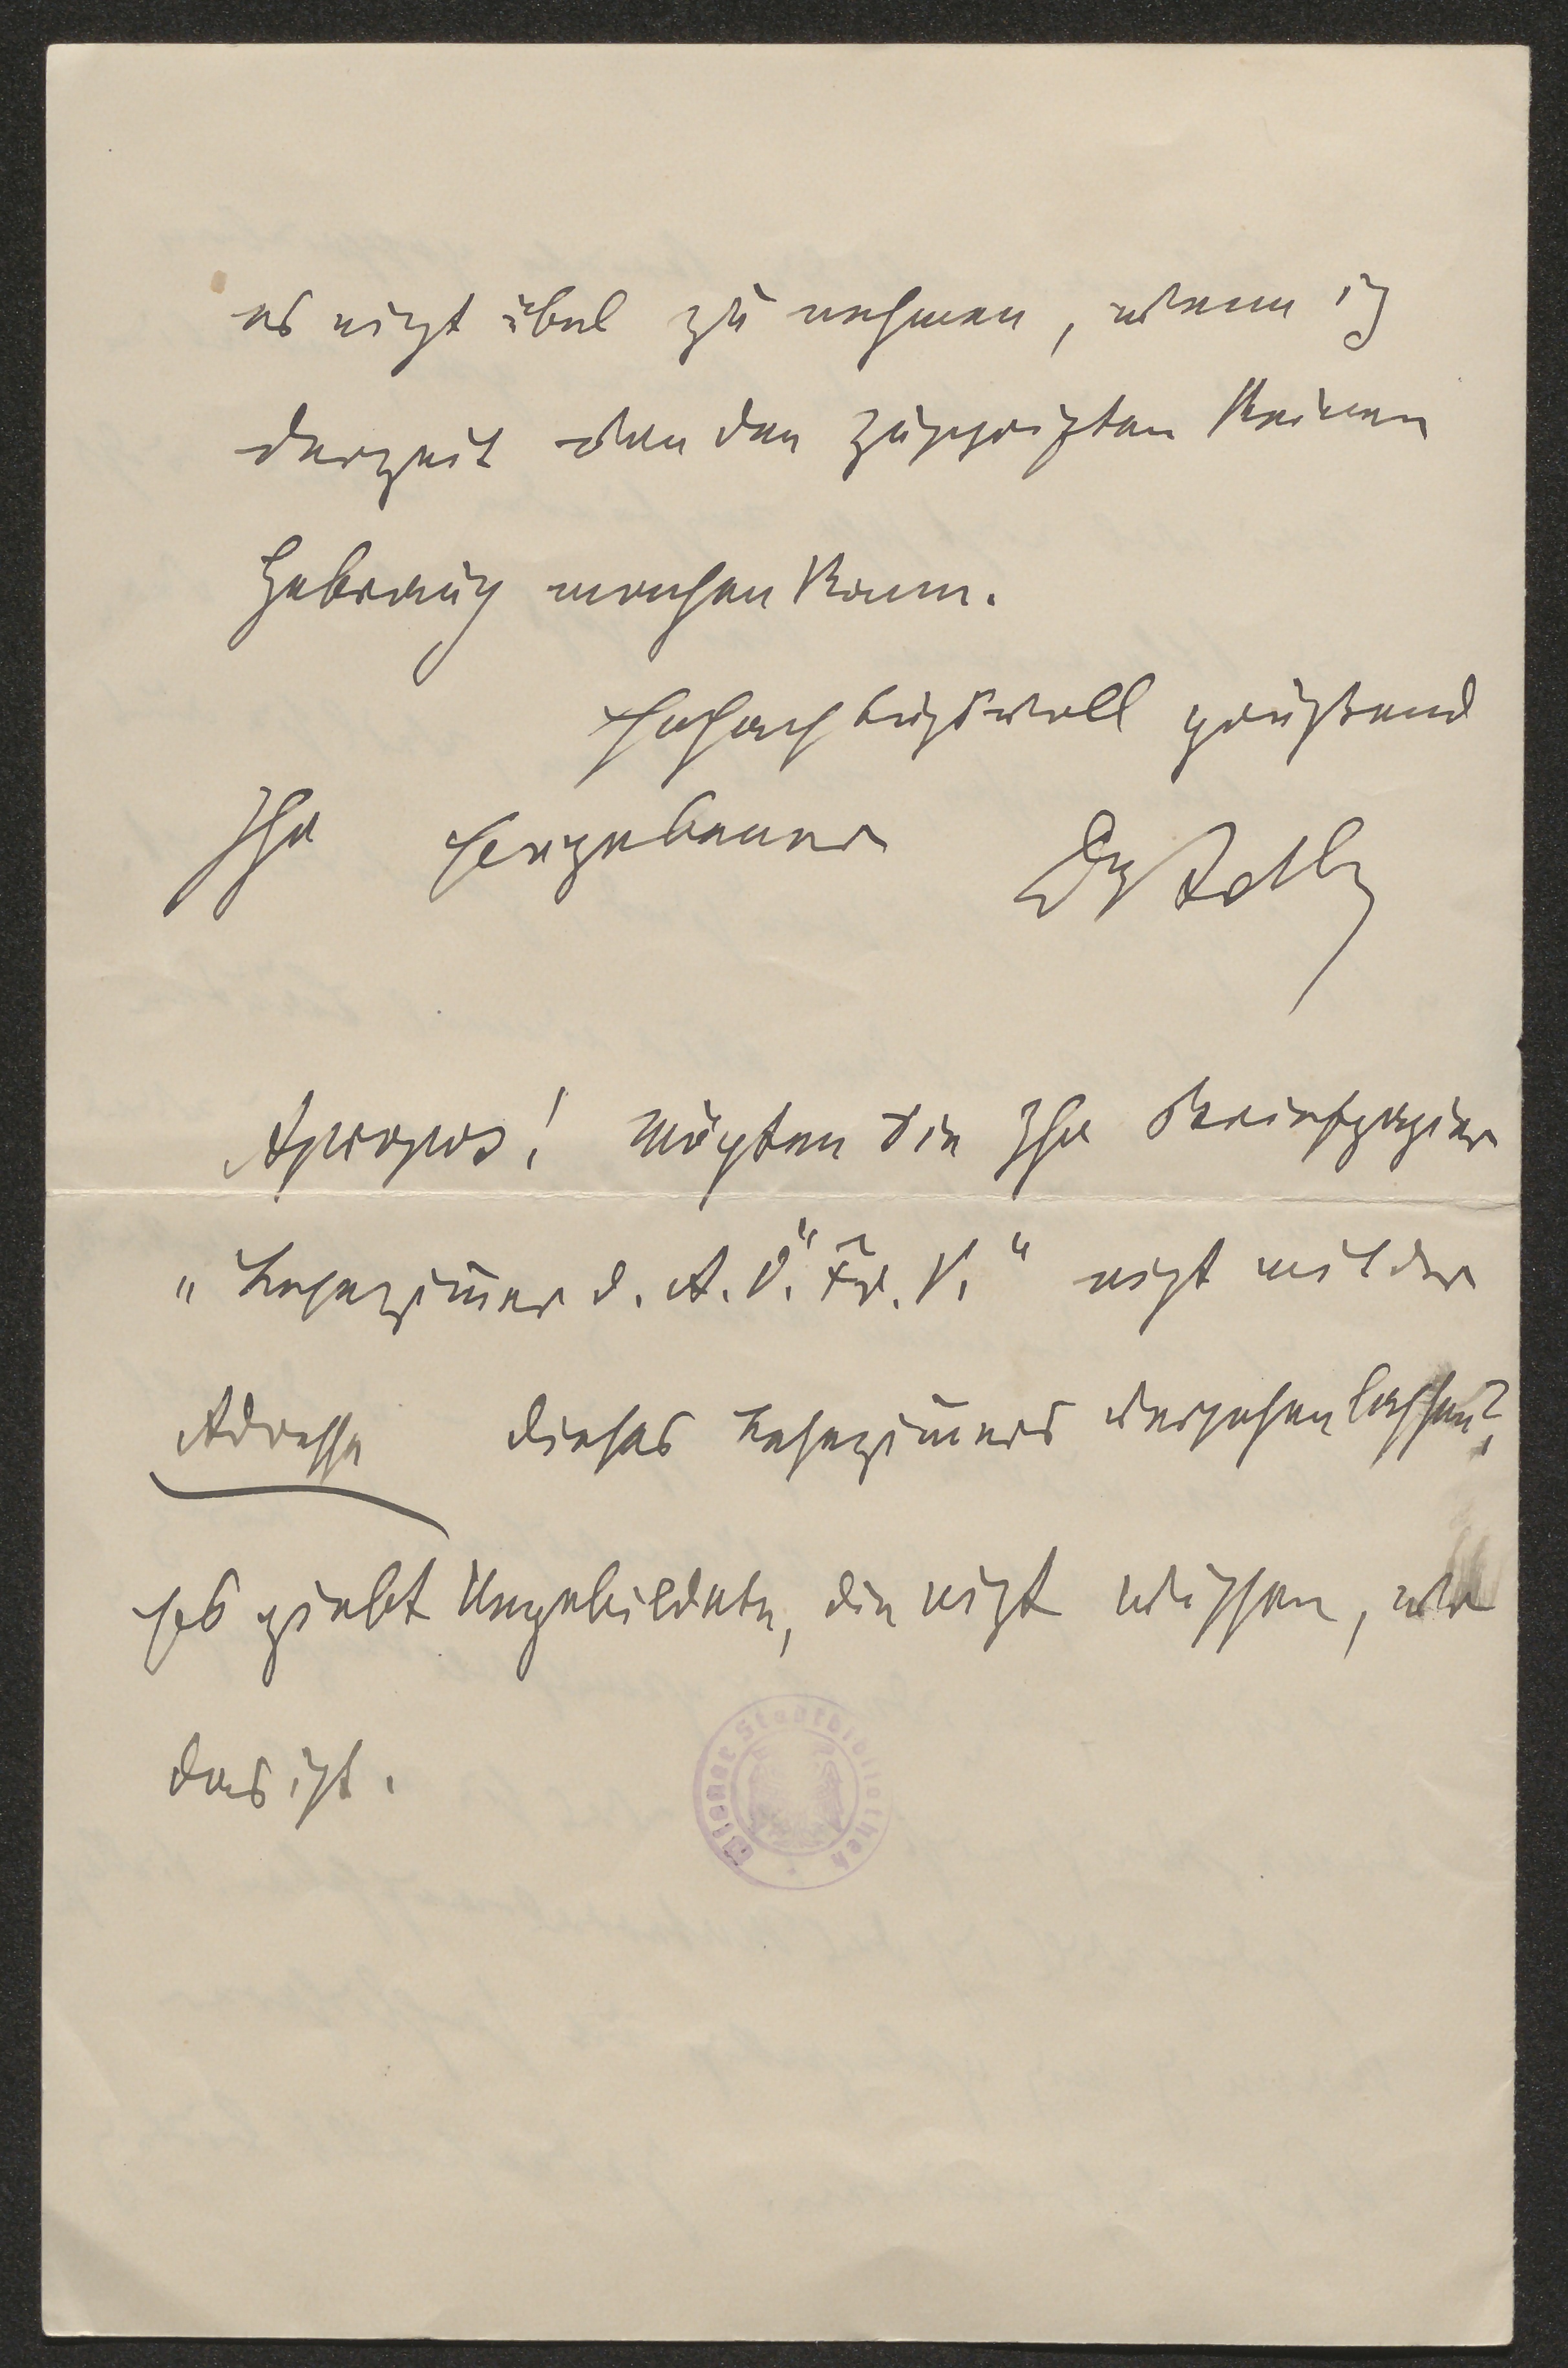 es nicht übel zu nehmen, wenn ich
derzeit von den Zuschriften keinen
Gebrauch machen kann.
Hochachtungsvoll grüßend
Ihr Ergebener Dr Adler
Apropos! Möchten Sie Ihr Briefpapier
„Lesezim̄er d. A. Ö. Fr. V.“ nicht mit der
Adresse dieses Lesezim̄ers versehen lassen?
Es giebt Ungebildete, die nicht wissen, wo
das ist.
Wiener Stadtbibliothek